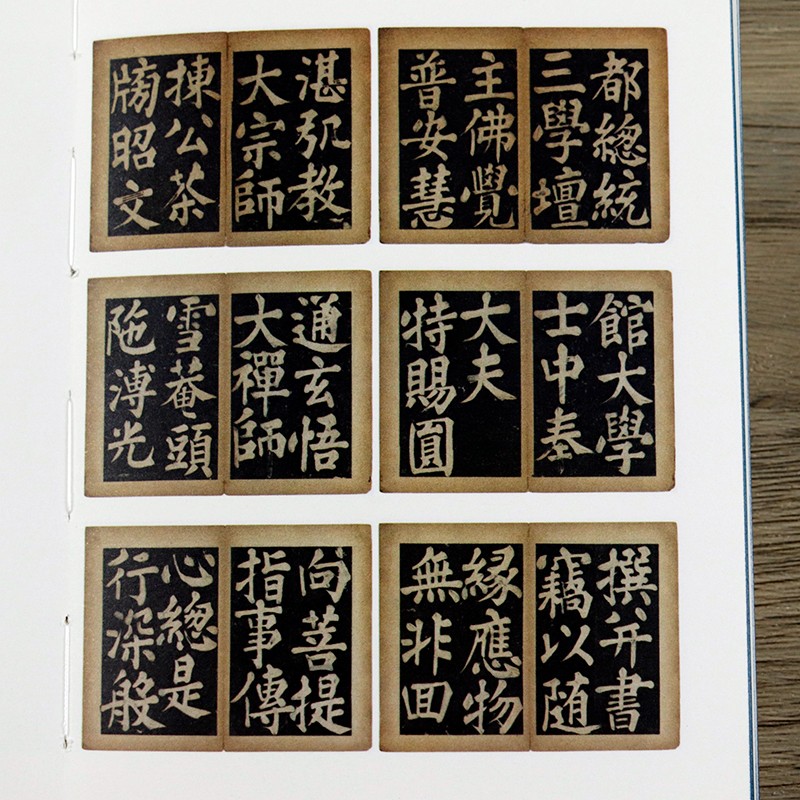 都總統
三學壇
主佛覺
普安慧
湛弘教
大宗師
揀公茶
牓昭文
館大學
士中奉
大夫
特賜圓
通玄悟
大禪師
雪菴頭
陁溥光
撰并書
竊以随
縁應物
無非回
向菩提
指事傳
心總是
行深般